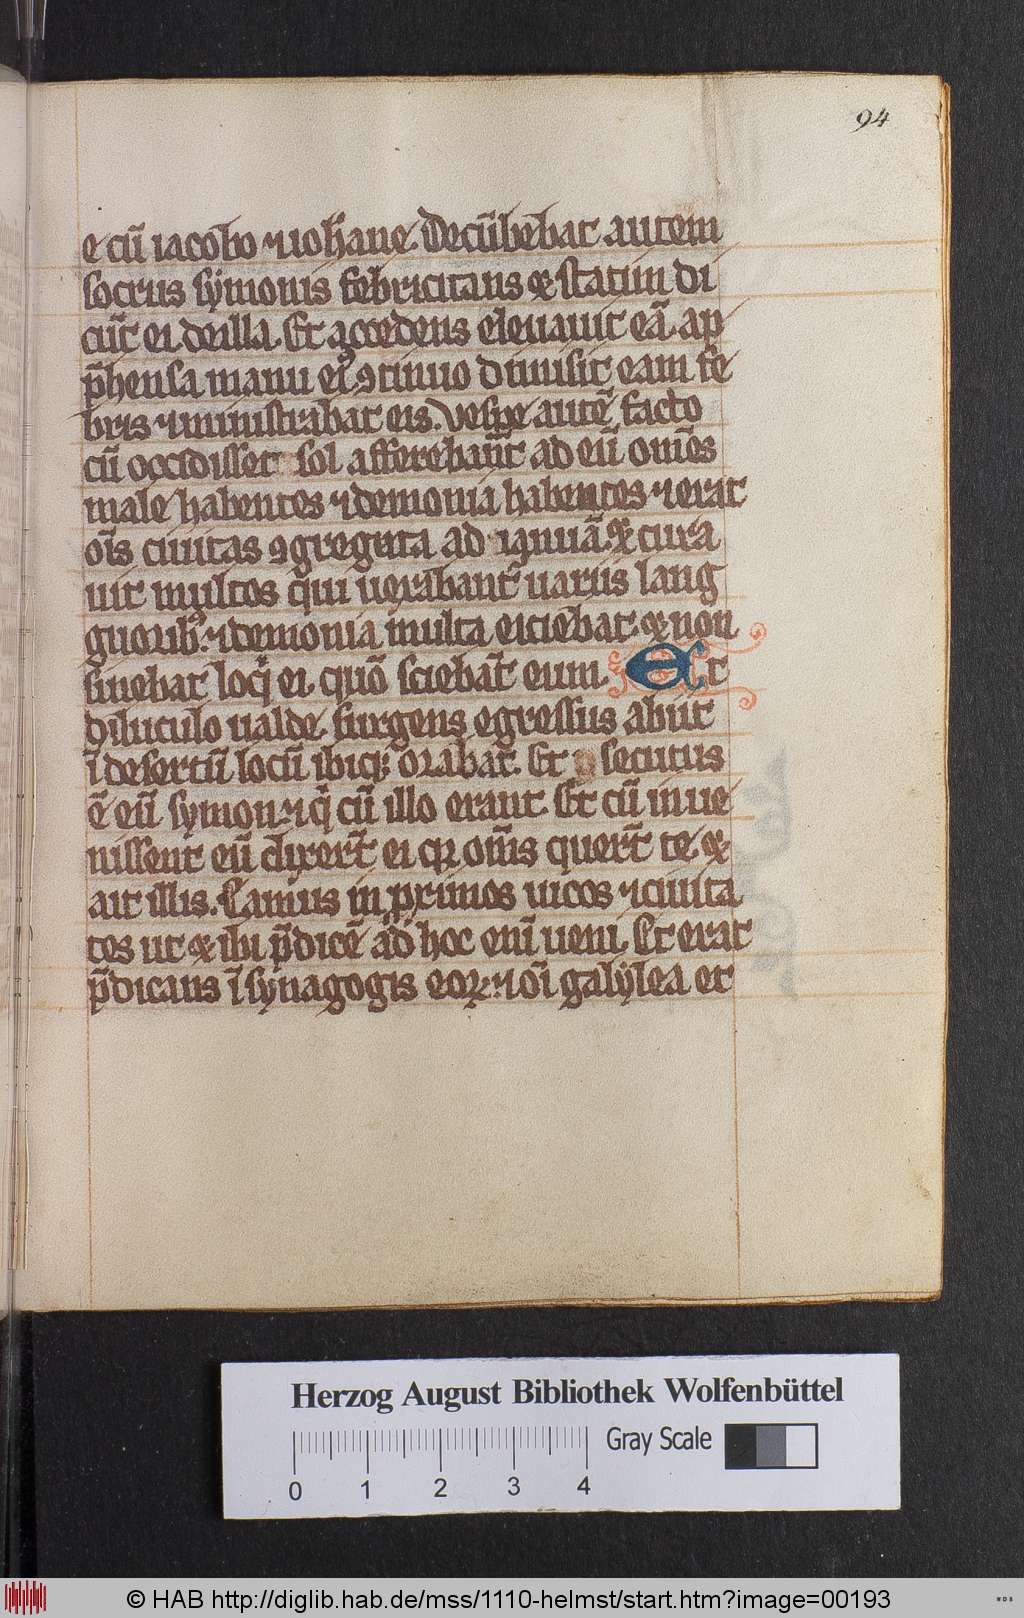 94
e cū iacobo ⁊ ioh̄ane. Decūbebat autem
socrus symonis febricitans & statim di
cūt ei de illa. Et accedens eleuauit eā. ap
p̄hensa manu ei⁹ ꝯtinuo dimisit eam fe
bris ⁊ ministrabat eis. Vespe autē facto
cū occidisset sol afferebant̄ ad eū om̄es
male habentes ⁊ demonia habentes ⁊ erat
oīs ciuitas ꝯgregata ad ianuā. & cura
uit multos qui uexabant̄ uariis lang
guorib⁹. ⁊ demonia multa eiciebat. & non
sinebat loqi ei quō sciebāt eum. Et
diluculo ualde surgens egressus abiit
ī desertū locū ibiq; orabat. Et secutus
ē eū symon. ⁊ q̄ cū illo erant. Et cū inue
nissent eū dixer̄t ei qꝛ om̄s quer̄t te. &
ait illis. Eamus in proximos uicos ⁊ ciuita
tes ut & ibi p̄dicē ad hoc eni ueni. Et erat
p̄dicans ī synagogis eoꝝ. ⁊ oī galylea et
Herzog August Bibliothek Wolfenbüttel
Gray Scale
0 1 2 3 4
© HAB http://diglib.hab.de/mss/1110-helmst/start.htm?image=00193